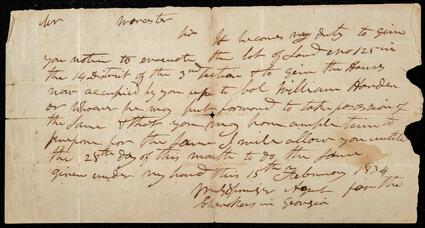 Mr Worcester
Sir It becomes my duty to give
you notice to evacuate the lot of Land No 125 in
the 14 district of the 3rd Section & to give the House
now occupied by you up to Col William Harden
or whoever he may put forward to take possession of
the same & that you may have ample time to
prepare for the same I will allow you until
the 28th day of this month to do the same
given under my hand this 15th February 1834
Wm Springer Agent for the
Cherokees in Georgia